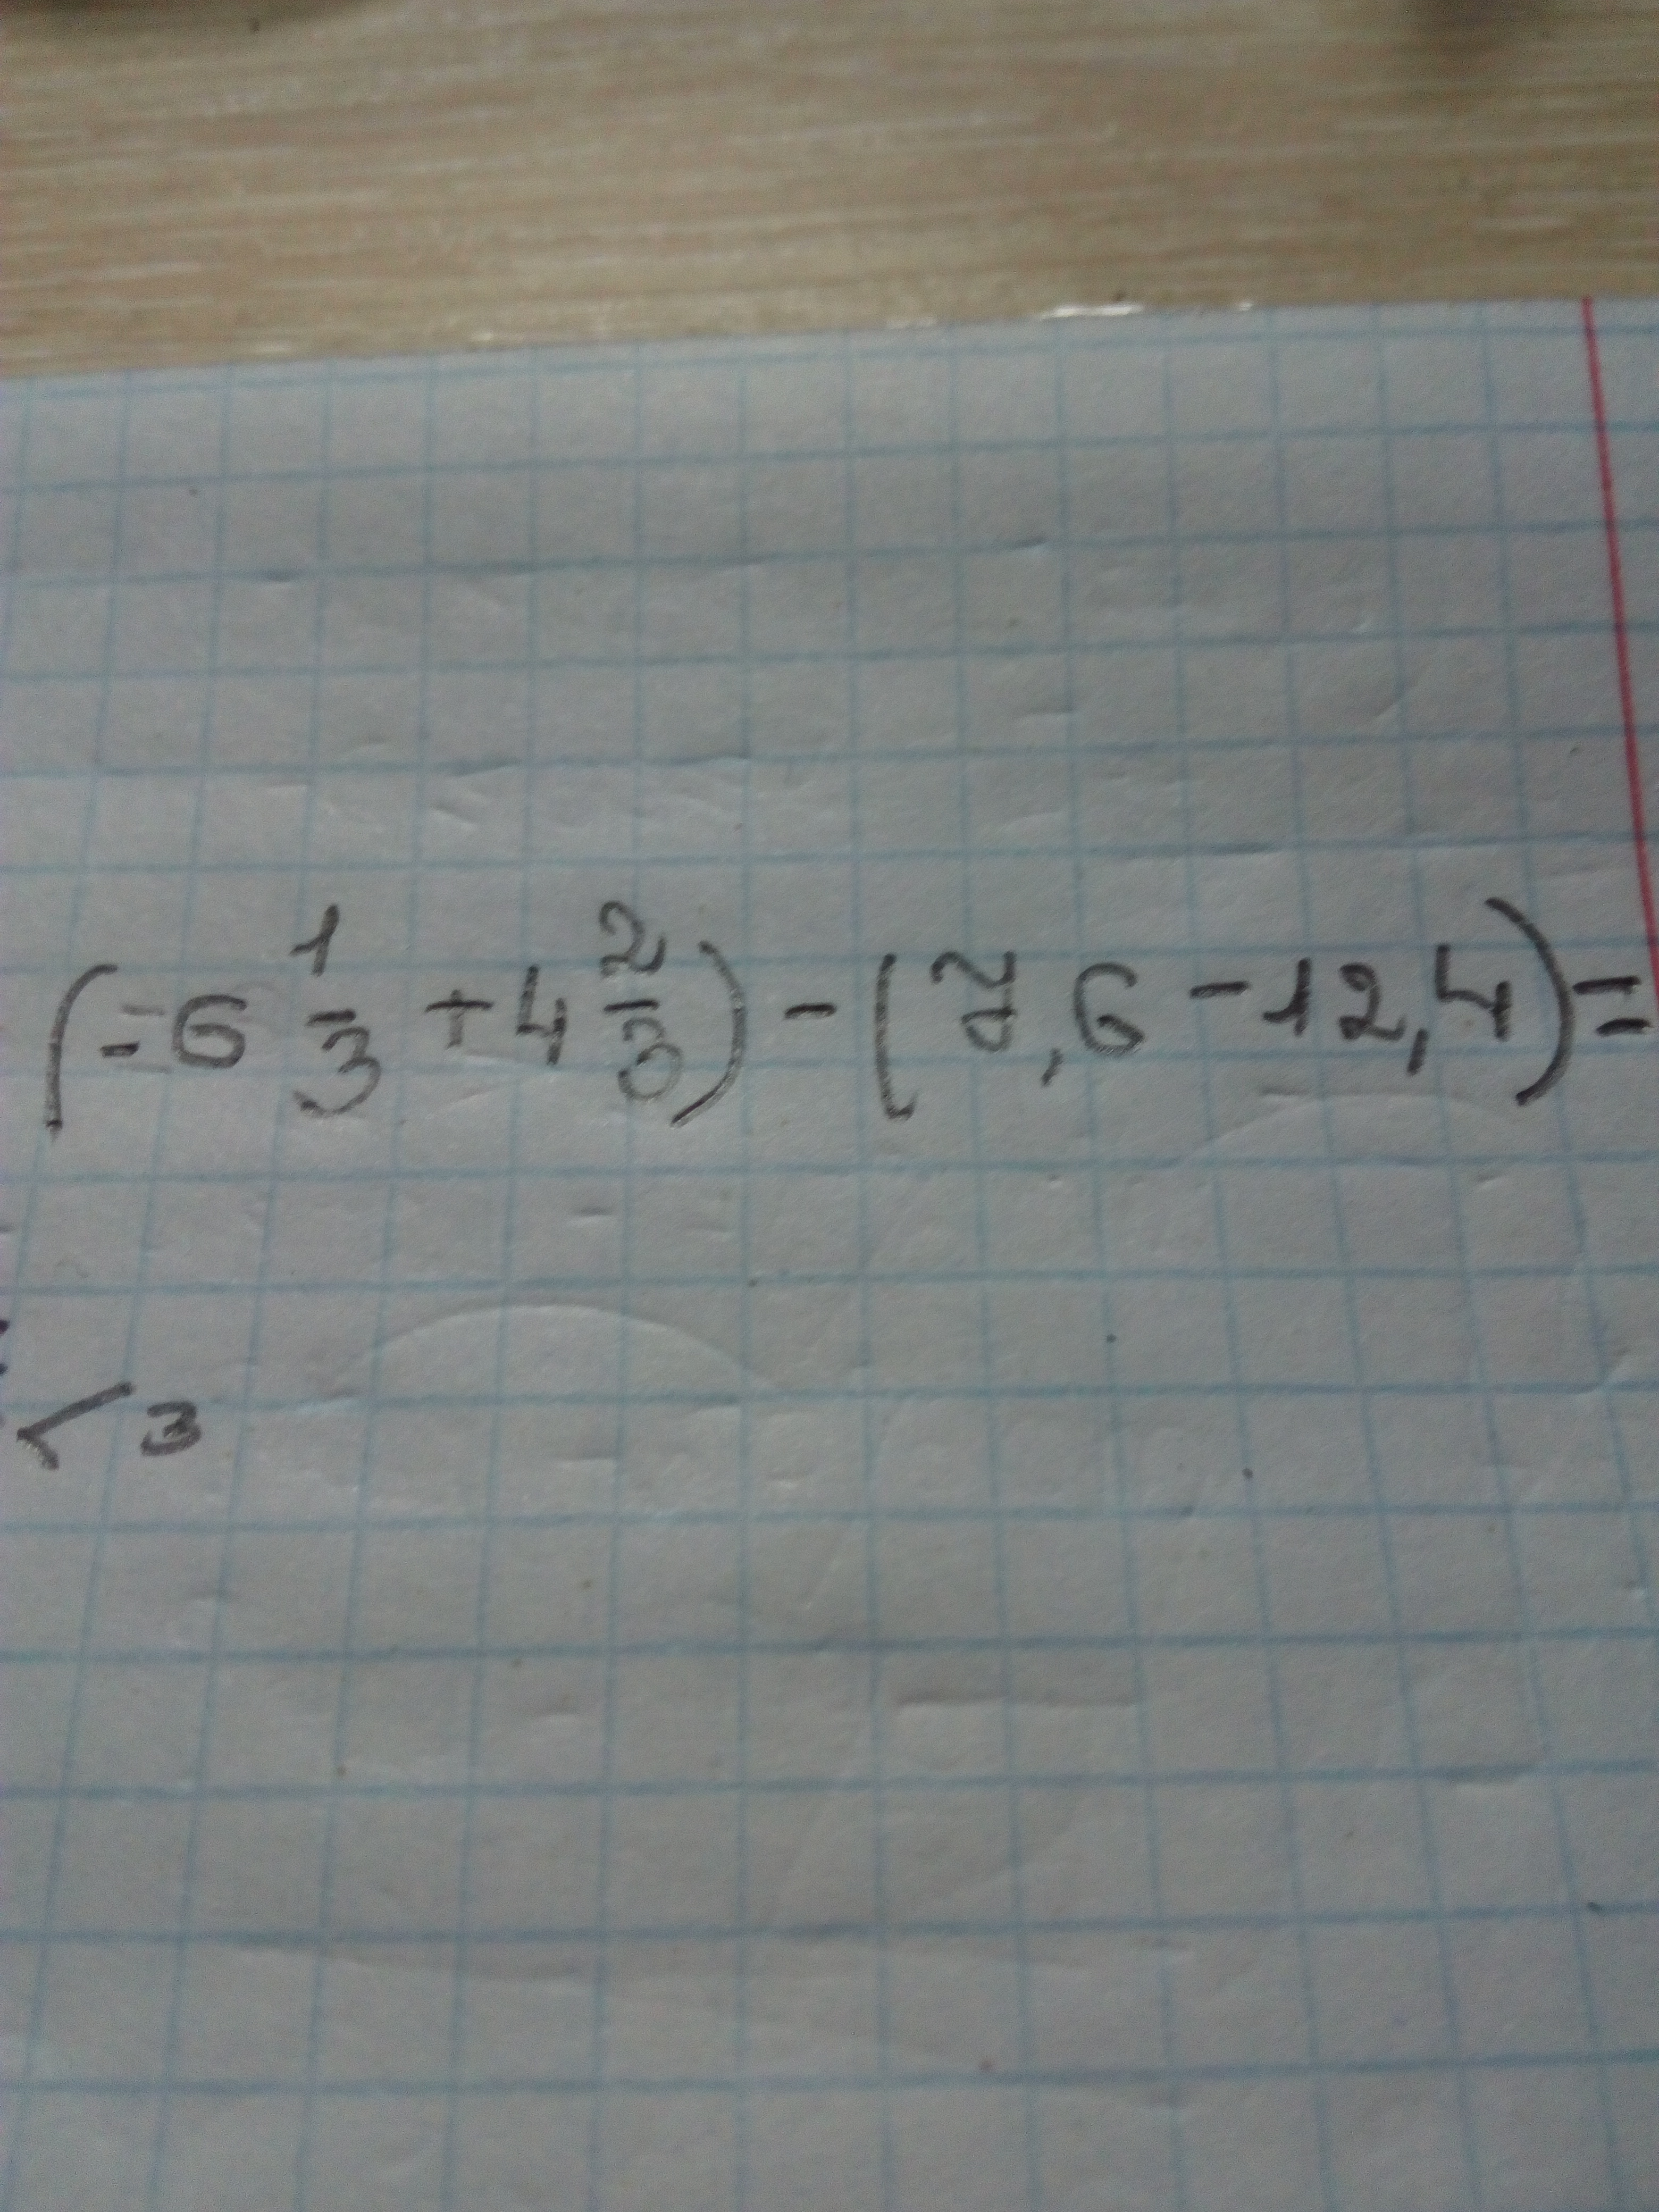 (-6 1/3 + 4 2/3) - (7,6 - 12,4) =
< 3